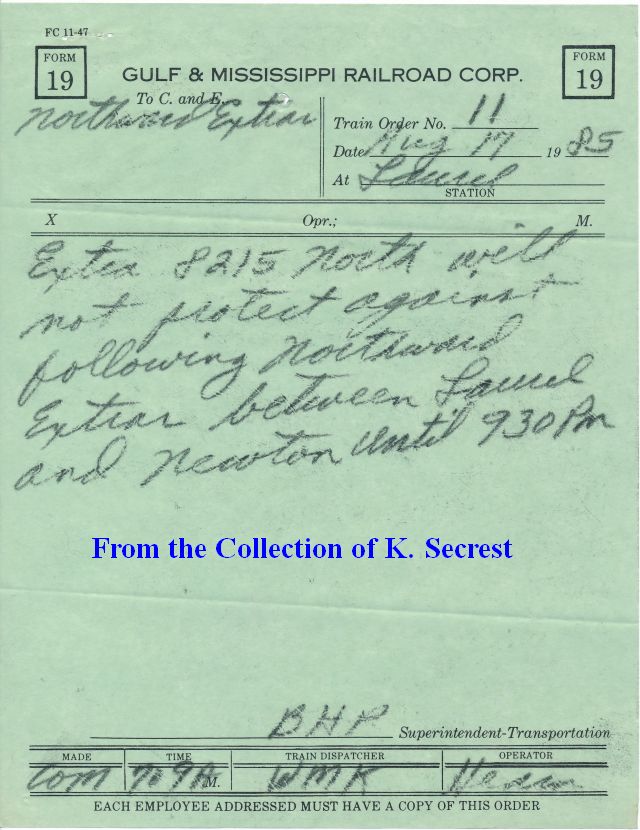 FC 11-47
FORM 19
FORM 19
GULF & MISSISSIPPI RAILROAD CORP.
To C. and E.
Northward Extras
Train Order No. 11
Date Aug 17 1985
At Laurel
STATION
X Opr.; M.
Extra 8215 North will
not protect against
following Northward
Extras between Laurel
and Newton until 930 Pm
From the Collection of K. Secrest
BHP Superintendent-Transportation
MADE TIME TRAIN DISPATCHER OPERATOR
Com M. WMK
EACH EMPLOYEE ADDRESSED MUST HAVE A COPY OF THIS ORDER